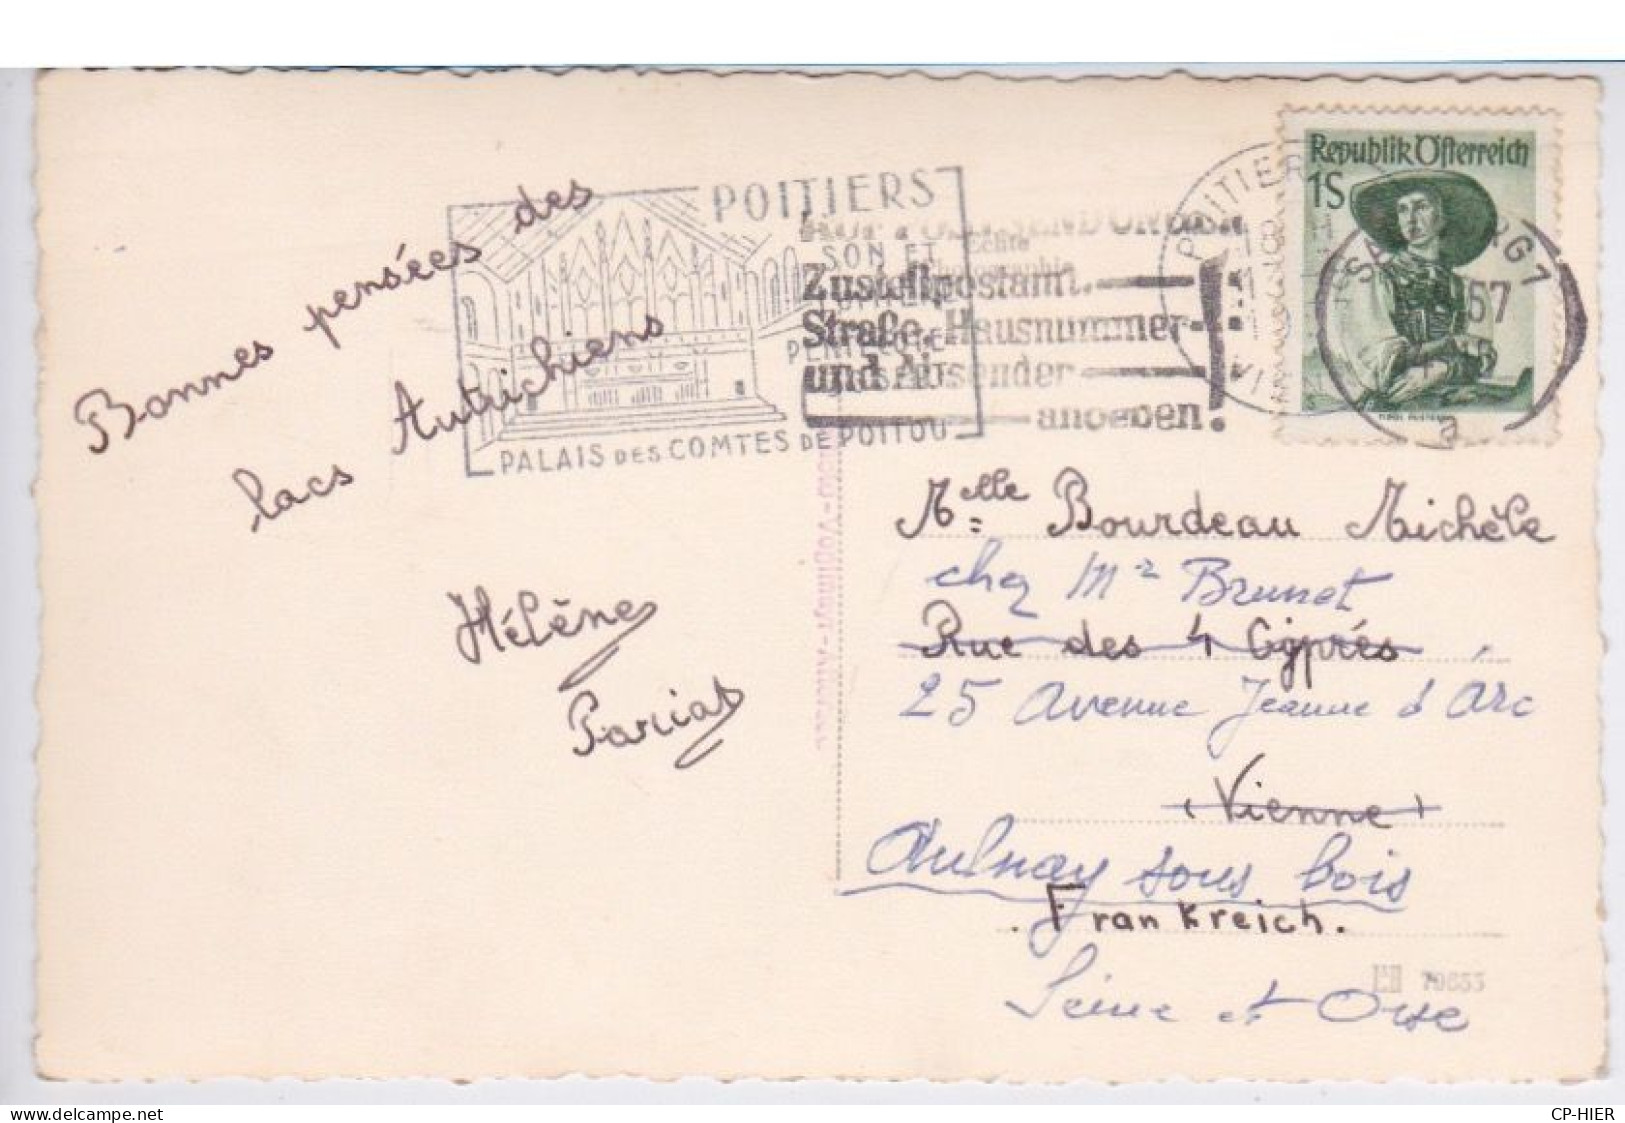 Bonnes pensées des
lacs Autrichiens
Hélène
POITIERS
SON ET
PALAIS DES COMTES DE POITOU
Echte
Zustellpostamt,
Straße, Hausnummer
und Absender
angeben!
POITIERS
Republik Österreich
1S
SALZBURG 1
57
a
Melle Bourdeau Michèle
chez Mr Brunet
Rue des 4 Cyprés
25 Avenue Jeanne d'Arc
(Vienne)
Aulnay sous bois
Frankreich.
Seine et Oise
www.delcampe.net
CP-HIER